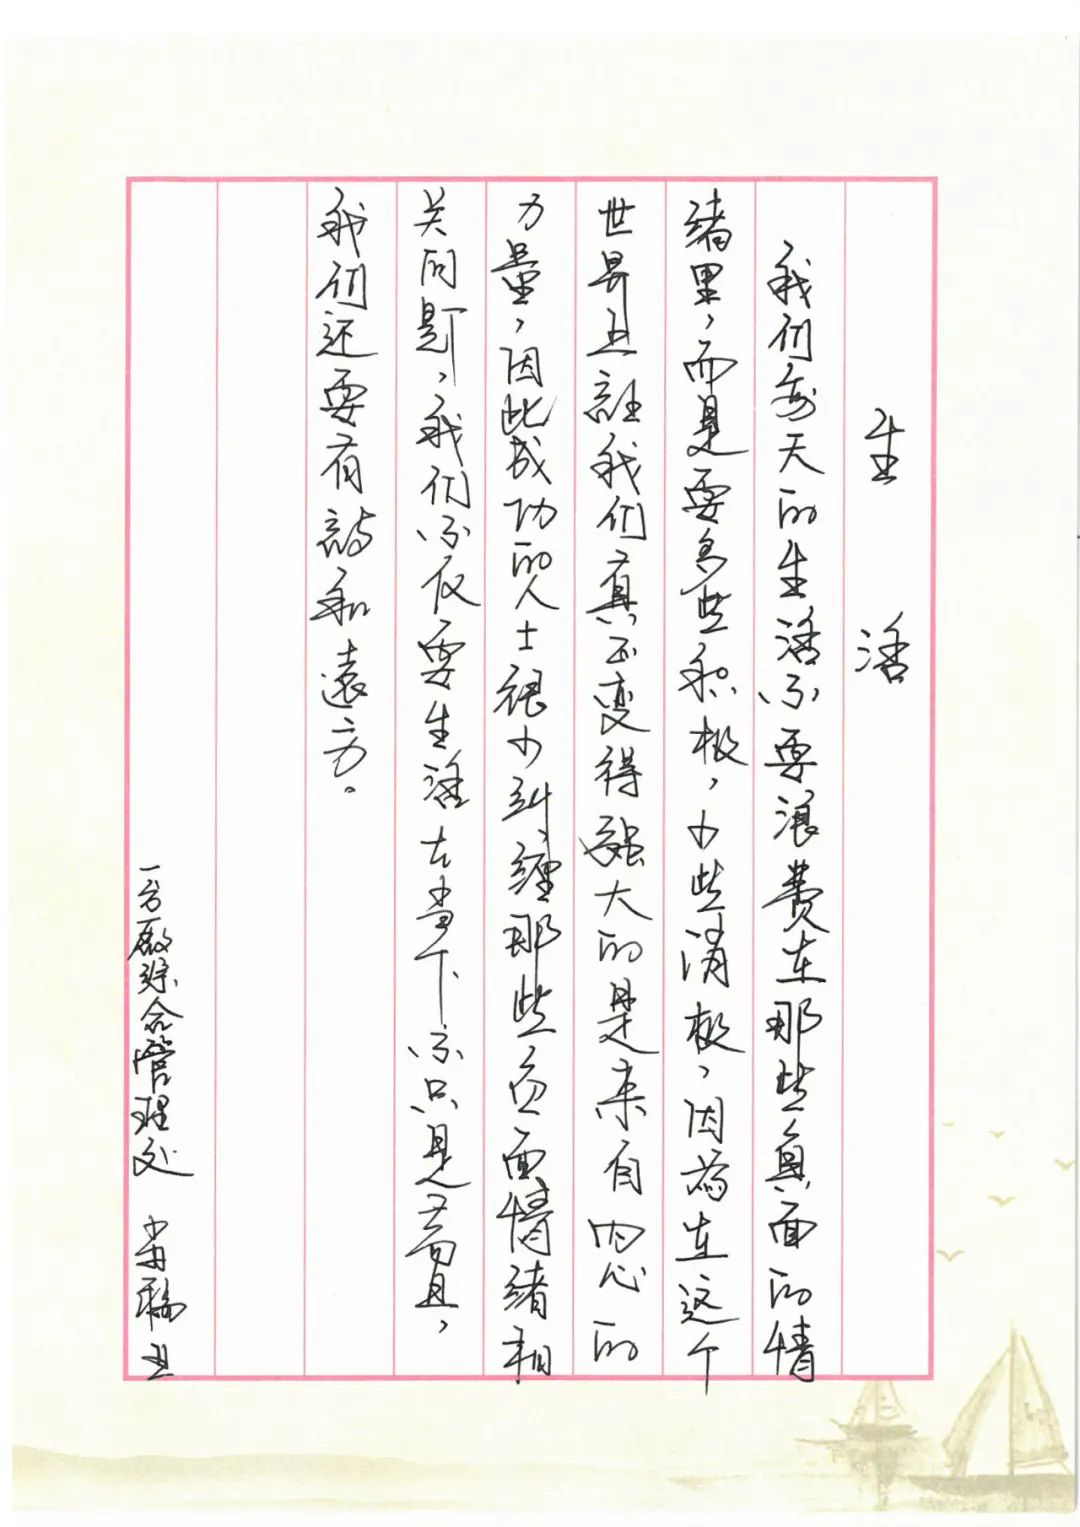 生活
我们每天的生活不要浪费在那些負面的情
绪里，而是要多些积极，少些消极，因为在这个
世界且能我们真正变得強大的是来自内心的
力量，因此成功的人士很少纠缠那些负面情绪相
关问题，我们不仅要生活在当下不只是苟且，
我们还要有詩和遠方。
一分廠综合管理处